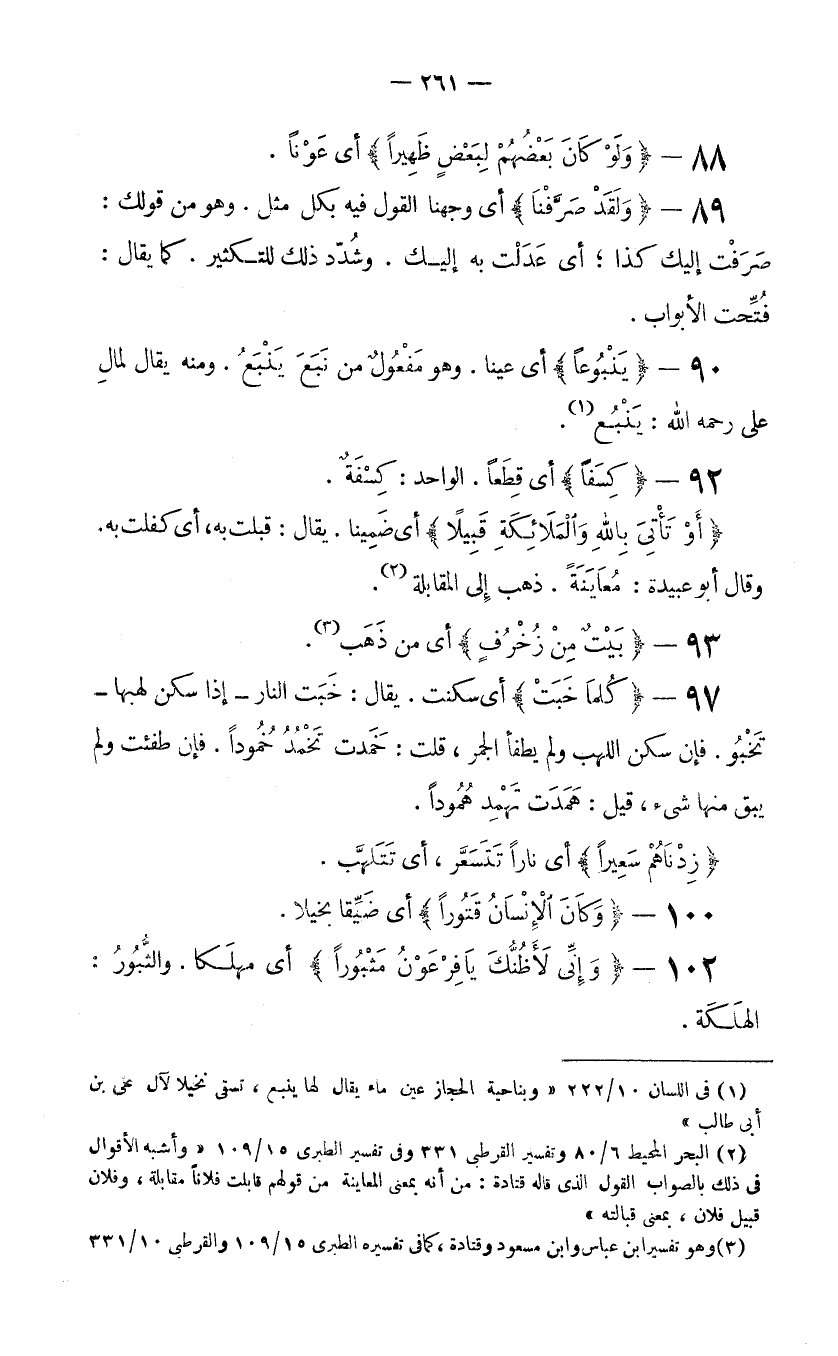 — ٢٦١ —
٨٨ — ﴿ وَلَوْ كَانَ بَعْضُهُمْ لِبَعْضٍ ظَهِيراً ﴾ أى عَوْناً .
٨٩ — ﴿ وَلَقَدْ صَرَّفْنَا ﴾ أى وجهنا القول فيه بكل مثل . وهو من قولك :
صَرَفْت إليك كذا ؛ أى عَدَلْت به إليـك . وشُدّد ذلك للتـكثير . كما يقال :
فُتِّحت الأبواب .
٩٠ — ﴿ يَنْبُوعاً ﴾ أى عينا . وهو مَفْعُولٌ من نَبَعَ يَنْبَعُ . ومنه يقال لمالِ
على رحمه الله : يَنْبُـع (١).
٩٢ — ﴿ كِسَفاً ﴾ أى قِطَعاً . الواحد : كِسْفَةٌ .
﴿ أَوْ تَأْتِىَ بِاللهِ وَٱلْمَلَائِكَةِ قَبِيلًا ﴾ أى ضَمِينا . يقال : قبلت به، أى كفلت به.
وقال أبو عبيدة : مُعَايَنَةً . ذهب إلى المقابلة (٢).
٩٣ — ﴿ بَيْتٌ مِنْ زُخْرُفٍ ﴾ أى من ذَهَب (٣).
٩٧ — ﴿ كُلَّمَا خَبَتْ ﴾ أى سكنت . يقال : خَبَت النار ــ إذا سكن لهبها ــ
تَخْبُو . فإن سكن اللهب ولم يطفأ الجمر ، قلت : خَمَدت تَخْمُدُ خُمُوداً . فإن طفئت ولم
يبق منها شىء ، قيل : هَمَدَت تَهْمِد هُمُوداً .
﴿ زِدْنَاهُمْ سَعِيراً ﴾ أى ناراً تَتَسَعَّر ، أى تَتَلَهَّب .
١٠٠ — ﴿ وَكَانَ ٱلْإِنْسَانُ قَتُوراً ﴾ أى ضَيِّقا بخيلا .
١٠٢ — ﴿ وَإِنِّى لَأَظُنُّكَ يَافِرْعَوْنُ مَثْبُوراً ﴾ أى مهلَـكا . والثُّبُورُ :
الهَلَـكَة .
(١) فى اللسان ٢٢٢/١٠ « وبناحية الحجاز عين ماء يقال لها ينبع ، تسقى نخيلا لآل على بن
أبى طالب »
(٢) البحر المحيط ٨٠/٦ وتفسير القرطبى ٣٣١ وفى تفسير الطبرى ١٠٩/١٥ « وأشبه الأقوال
فى ذلك بالصواب القول الذى قاله قتادة : من أنه بمعنى المعاينة من قولهم قابلت فلاناً مقابلة ، وفلان
قبيل فلان ، بمعنى قبالته »
(٣) وهو تفسير ابن عباس وابن مسعود وقتادة ، كما فى تفسيره الطبرى ١٠٩/١٥ والقرطبى ٣٣١/١٠